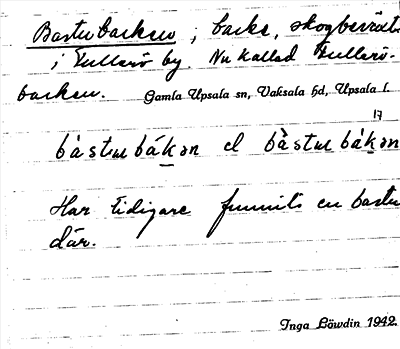 Bastubacken, backe, skogbeväxt
i Fullerö by. Nu kallad Fullerö-
backen. Gamla Upsala sn, Vaksala hd, Upsala l.
17
bàstubákən el bàstubákən
Har tidigare funnits en bastu
där.
Inga Löwdin 1942